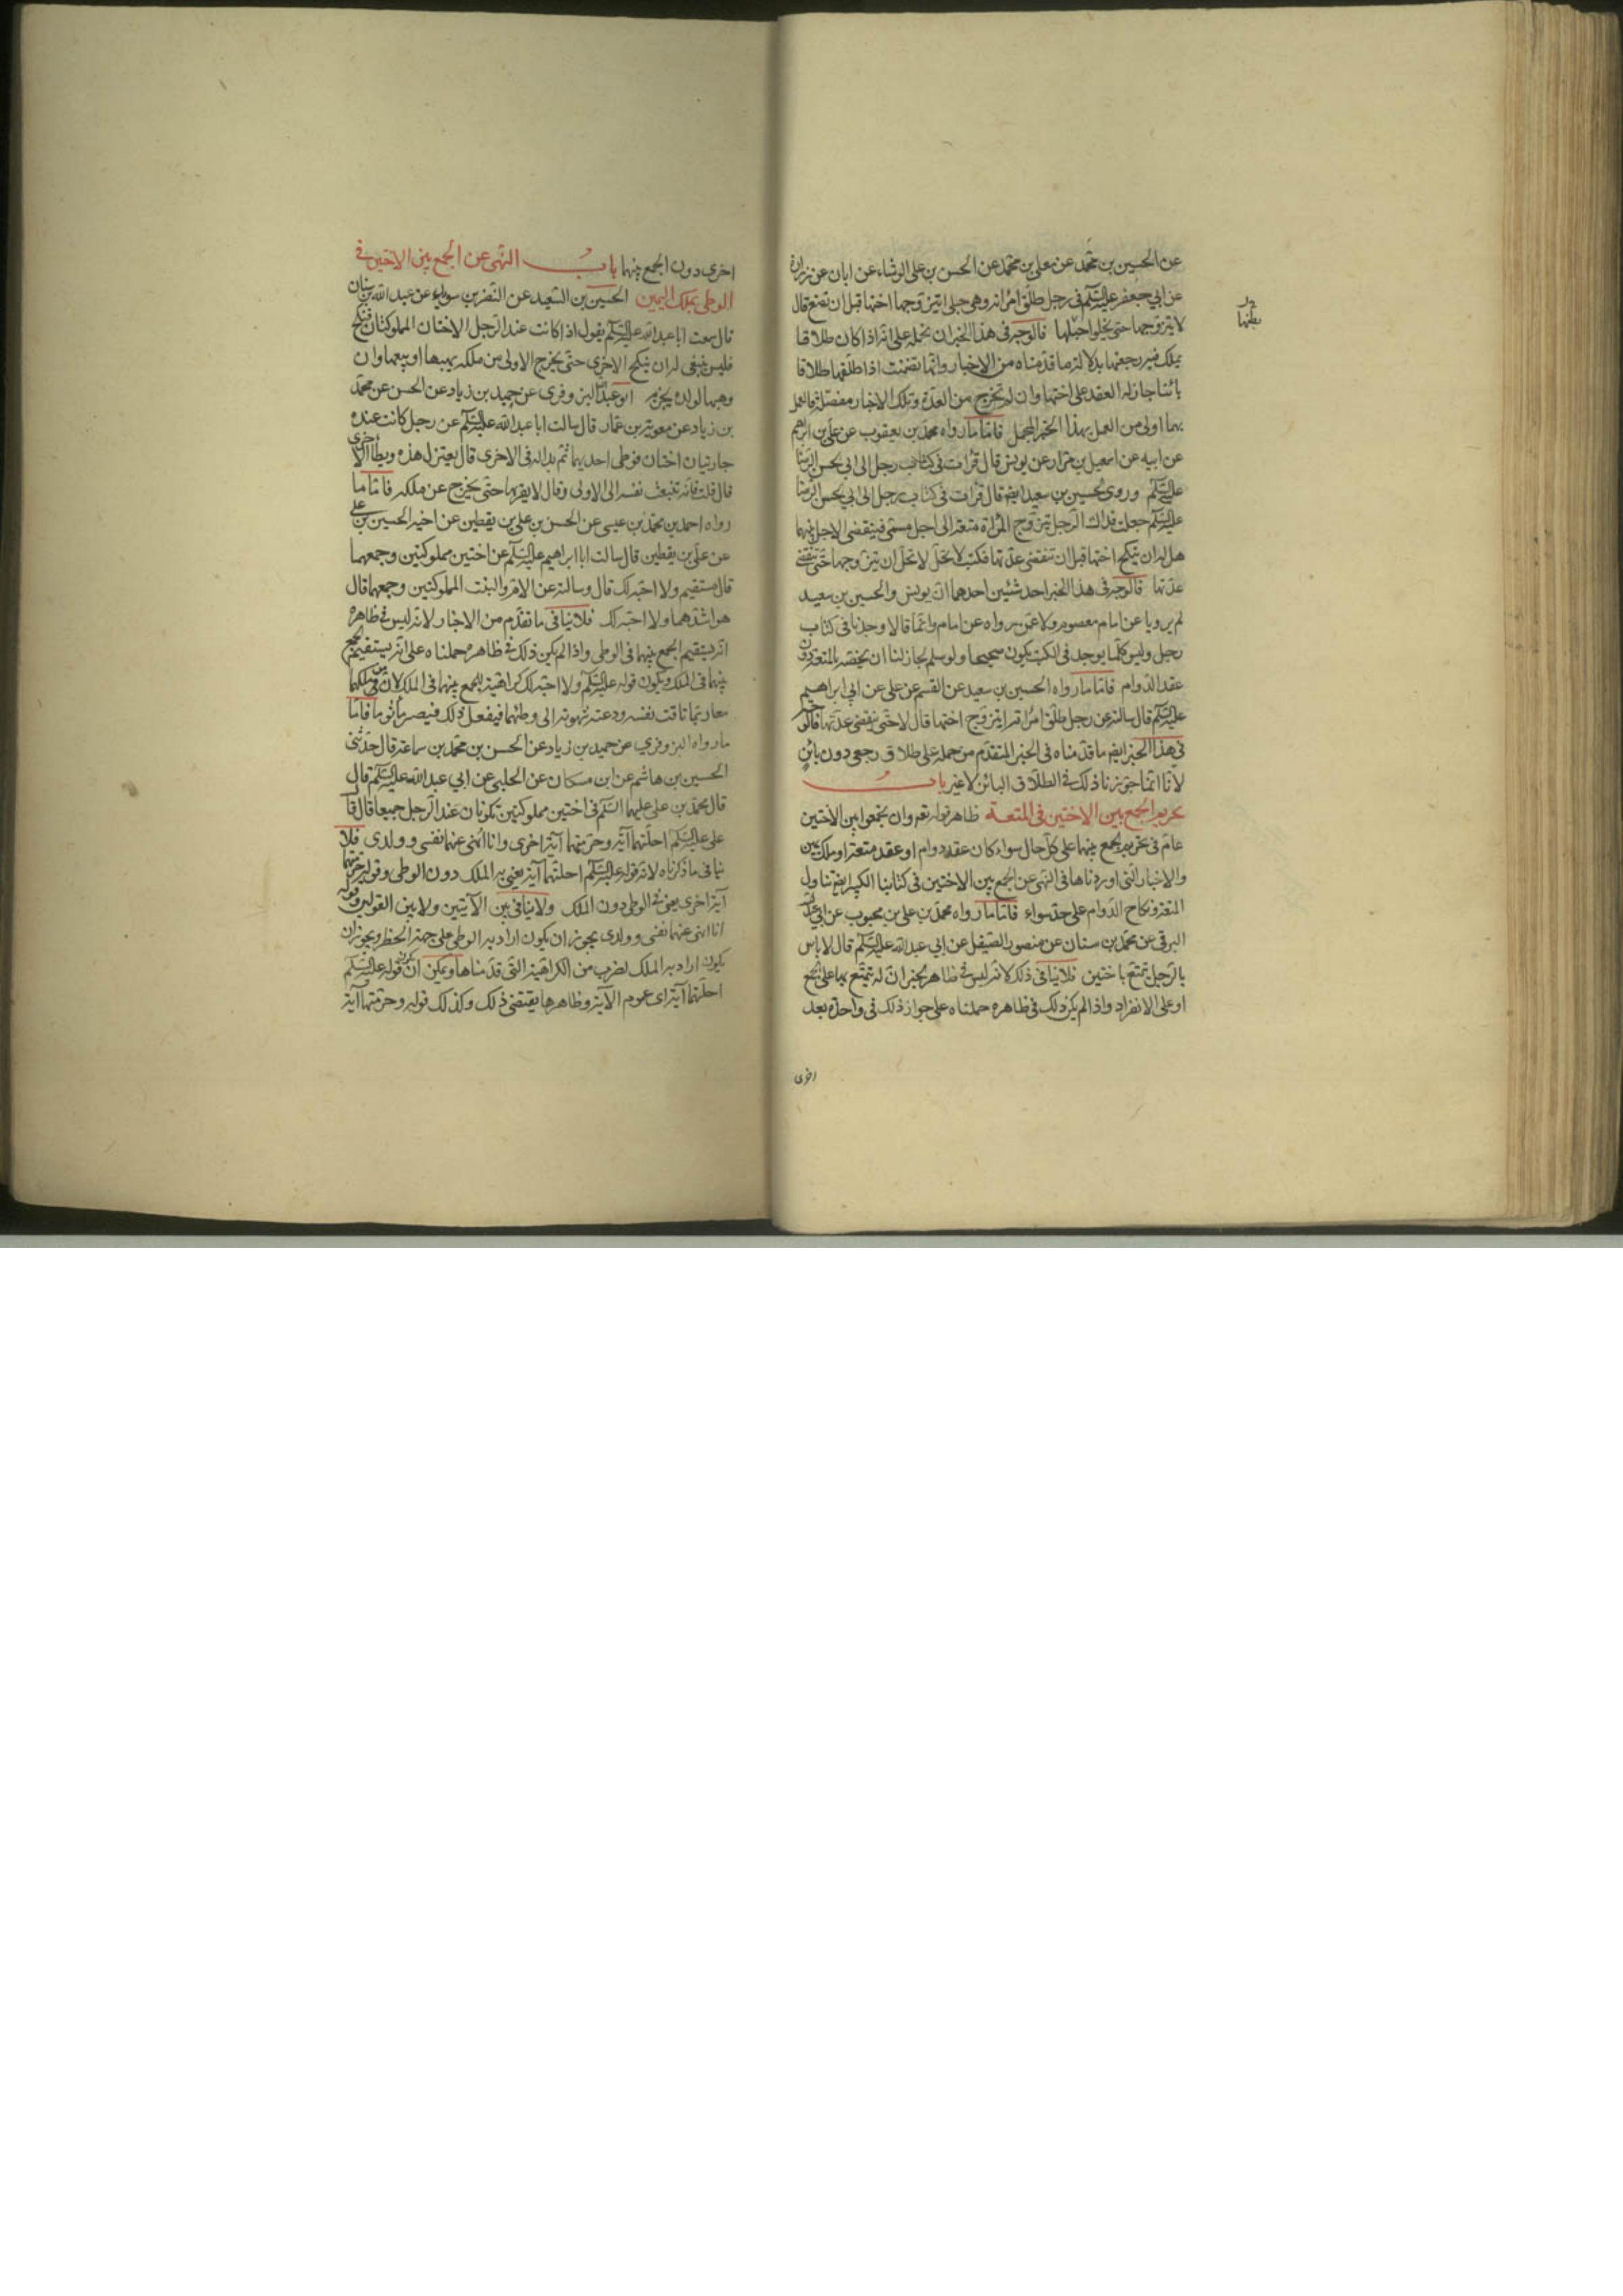 عن الحسين بن محمد عن معلى بن محمد عن الحسن بن على الوشاء عن ابان عن زرارة
عن ابي جعفر عليه السلم فى رجل طلق امراته وهى حبلى ايتزوجها اختها قبل ان تضع قال
لا يتزوجها حتى يخلوا حبلها فالوجه فى هذا الخبر ان نحمله على انه اذا كان طلاقا
يملك فيه رجعتها بدلالة ما قدمناه من الاخبار وانها تضمنت اذا طلقها طلاقا
بائنا جاز له العقد على اختها وان لم تخرج من العدة وتلك الاخبار مفصلة فالعمل
بها اولى من العمل بهذا الخبر المجمل فاما ما رواه محمد بن يعقوب عن على بن ابراهيم
عن ابيه عن اسمعيل بن مرار عن يونس قال قرات فى كتاب رجل الى ابى الحسن الرضا
عليه السلم وروى الحسين بن سعيد ايضا قال قرات فى كتاب رجل الى ابي الحسن الرضا
عليه السلم جعلت فداك الرجل يتزوج المراة متعة الى اجل مسمى فينقضى الاجل بينهما
هل له ان ينكح اختها قبل ان تنقضى عدتها فكتب لا يحل لا يحل ان يتزوجها حتى تنقضى
عدتها فالوجه فى هذا الخبر احد شئين احدهما ان يونس والحسين بن سعيد
لم يرويا عن امام معصوم ولا عمن رواه عن امام وانما قالا وجدنا فى كتاب
رجل وليس كلما يوجد فى الكتب يكون صحيحا ولو سلم لجاز لنا ان نخصه بالمتعة دون
عقد الدوام فاما ما رواه الحسين بن سعيد عن القسم عن على عن ابي ابراهيم
عليه السلم قال سالته عن رجل طلق امراته ايتزوج اختها قال لا حتى ينقضى عدتها فالوجه
فى هذا الخبر ايضا ما قدمناه فى الخبر المتقدم من حمله على طلاق رجعى دون باين
لانا انما جوزنا ذلك فى الطلاق البائن لا غير باب
تحريم الجمع بين الاختين فى المتعة ظاهر قوله تعم وان تجمعوا بين الاختين
عام فى تحريم الجمع بينهما على كل حال سواء كان عقد دوام او عقد متعة او ملك يمين
والاخبار التى اوردناها فى النهى عن الجمع بين الاختين فى كتابنا الكبير ايضا تتناول
المتعة ونكاح الدوام على حد سواء فاما ما رواه محمد بن على بن محبوب عن ابي عبد الله
البرقى عن محمد بن سنان عن منصور الصيقل عن ابي عبد الله عليه السلم قال لا باس
بالرجل يتمتع باختين فلا ينافى ذلك لانه ليس فى ظاهر الخبر ان له يتمتع بهما على الجمع
او على الانفراد واذا لم يكن ذلك فى ظاهره حملناه على جواز ذلك فى واحدة بعد
اخرى
بطنها
اخرى دون الجمع بينهما باب النهى عن الجمع بين الاختين فى
الوطى بملك اليمين الحسين بن السعيد عن النضر بن سويد عن عبد الله بن سنان
قال سمعت ابا عبد الله عليه السلم يقول اذا كانت عند الرجل الاختان المملوكتان فنكح
فليس ينبغى له ان ينكح الاخرى حتى يخرج الاولى من ملكه يهبها او يبيعها وان
وهبها لولده يجزيه ابو عبد الله البزوفرى عن حميد بن زياد عن الحسن عن محمد
بن زياد عن معوية بن عمار قال سالت ابا عبد الله عليه السلم عن رجل كانت عنده
جاريتان اختان فوطى احديهما ثم بدا له فى الاخرى قال يعتزل هذه ويطا الاخرى
قال قلت فانه تنبعث نفسه الى الاولى وقال لا يقربها حتى يخرج عن ملكه فاما ما
رواه احمد بن محمد بن عيسى عن الحسن بن على بن يقطين عن اخيه الحسين بن على
عن على بن يقطين قال سالت ابا ابراهيم عليه السلم عن اختين مملوكتين وجمعهما
قال مستقيم ولا احبه لك قال وسالته عن الام والبنت المملوكتين وجمعهما قال
هو اشدهما ولا احبه لك فلا ينافى ما تقدم من الاخبار لانه ليس فى ظاهره
انه يستقيم الجمع بينهما فى الوطى واذا لم يكن ذلك فى ظاهره حملناه على انه يستقيم الجمع
بينهما فى الملك ويكون قوله عليه السلم ولا احبه لك كراهية الجمع بينهما فى الملك لان من ملكهما
معا ربما تاقت نفسه ودعته شهوته الى وطئهما فيفعل ذلك فيصير ماثوما فاما
ما رواه البزوفرى عن حميد بن زياد عن الحسن بن محمد بن سماعة قال حدثنى
الحسين بن هاشم عن ابن مسكان عن الحلبى عن ابي عبد الله عليه السلم قال
قال محمد بن على عليهما السلم فى اختين مملوكتين تكونان عند الرجل جميعا قال قال
على عليه السلم احلتهما آية وحرمتهما آية اخرى وانا انهى عنهما نفسى وولدى فلا
ينافى ما ذكرناه لان قوله عليه السلم احلتهما آية يعنى به الملك دون الوطى وقوله حرمتهما
آية اخرى يعنى فى الوطى دون الملك ولا ينافى بين الآيتين ولا بين القولين وقوله
انا انهى عنهما نفسى وولدى يجوز ان يكون اراد به الوطى على جهة الحظر ويجوز ان
يكون اراد به الملك لضرب من الكراهية التى قدمناها ويمكن ان يكون قوله عليه السلم
احلتهما آية اى عموم الآية وظاهرها يقتضى ذلك وكذلك قوله وحرمتهما آية